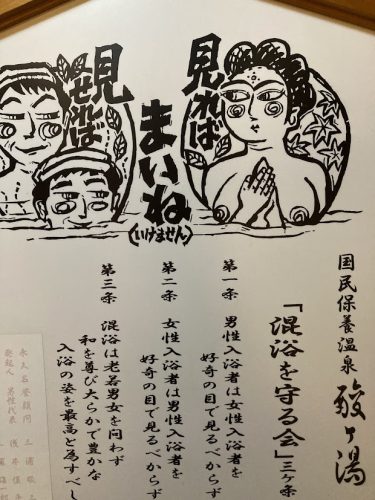 見れば
まいね
(いけません)
見せれば
国民保養温泉 酸ヶ湯
「混浴を守る会」三ヶ条
第一条 男性入浴者は女性入浴者を
好奇の目で見るべからず
第二条 女性入浴者は男性入浴者を
好奇の目で見るべからず
第三条 混浴は老若男女を問わず
和を尊び大らかで豊かな
入浴の姿を最高と為すべし
永久名誉顧問 三浦敬三
発起人 男性代表